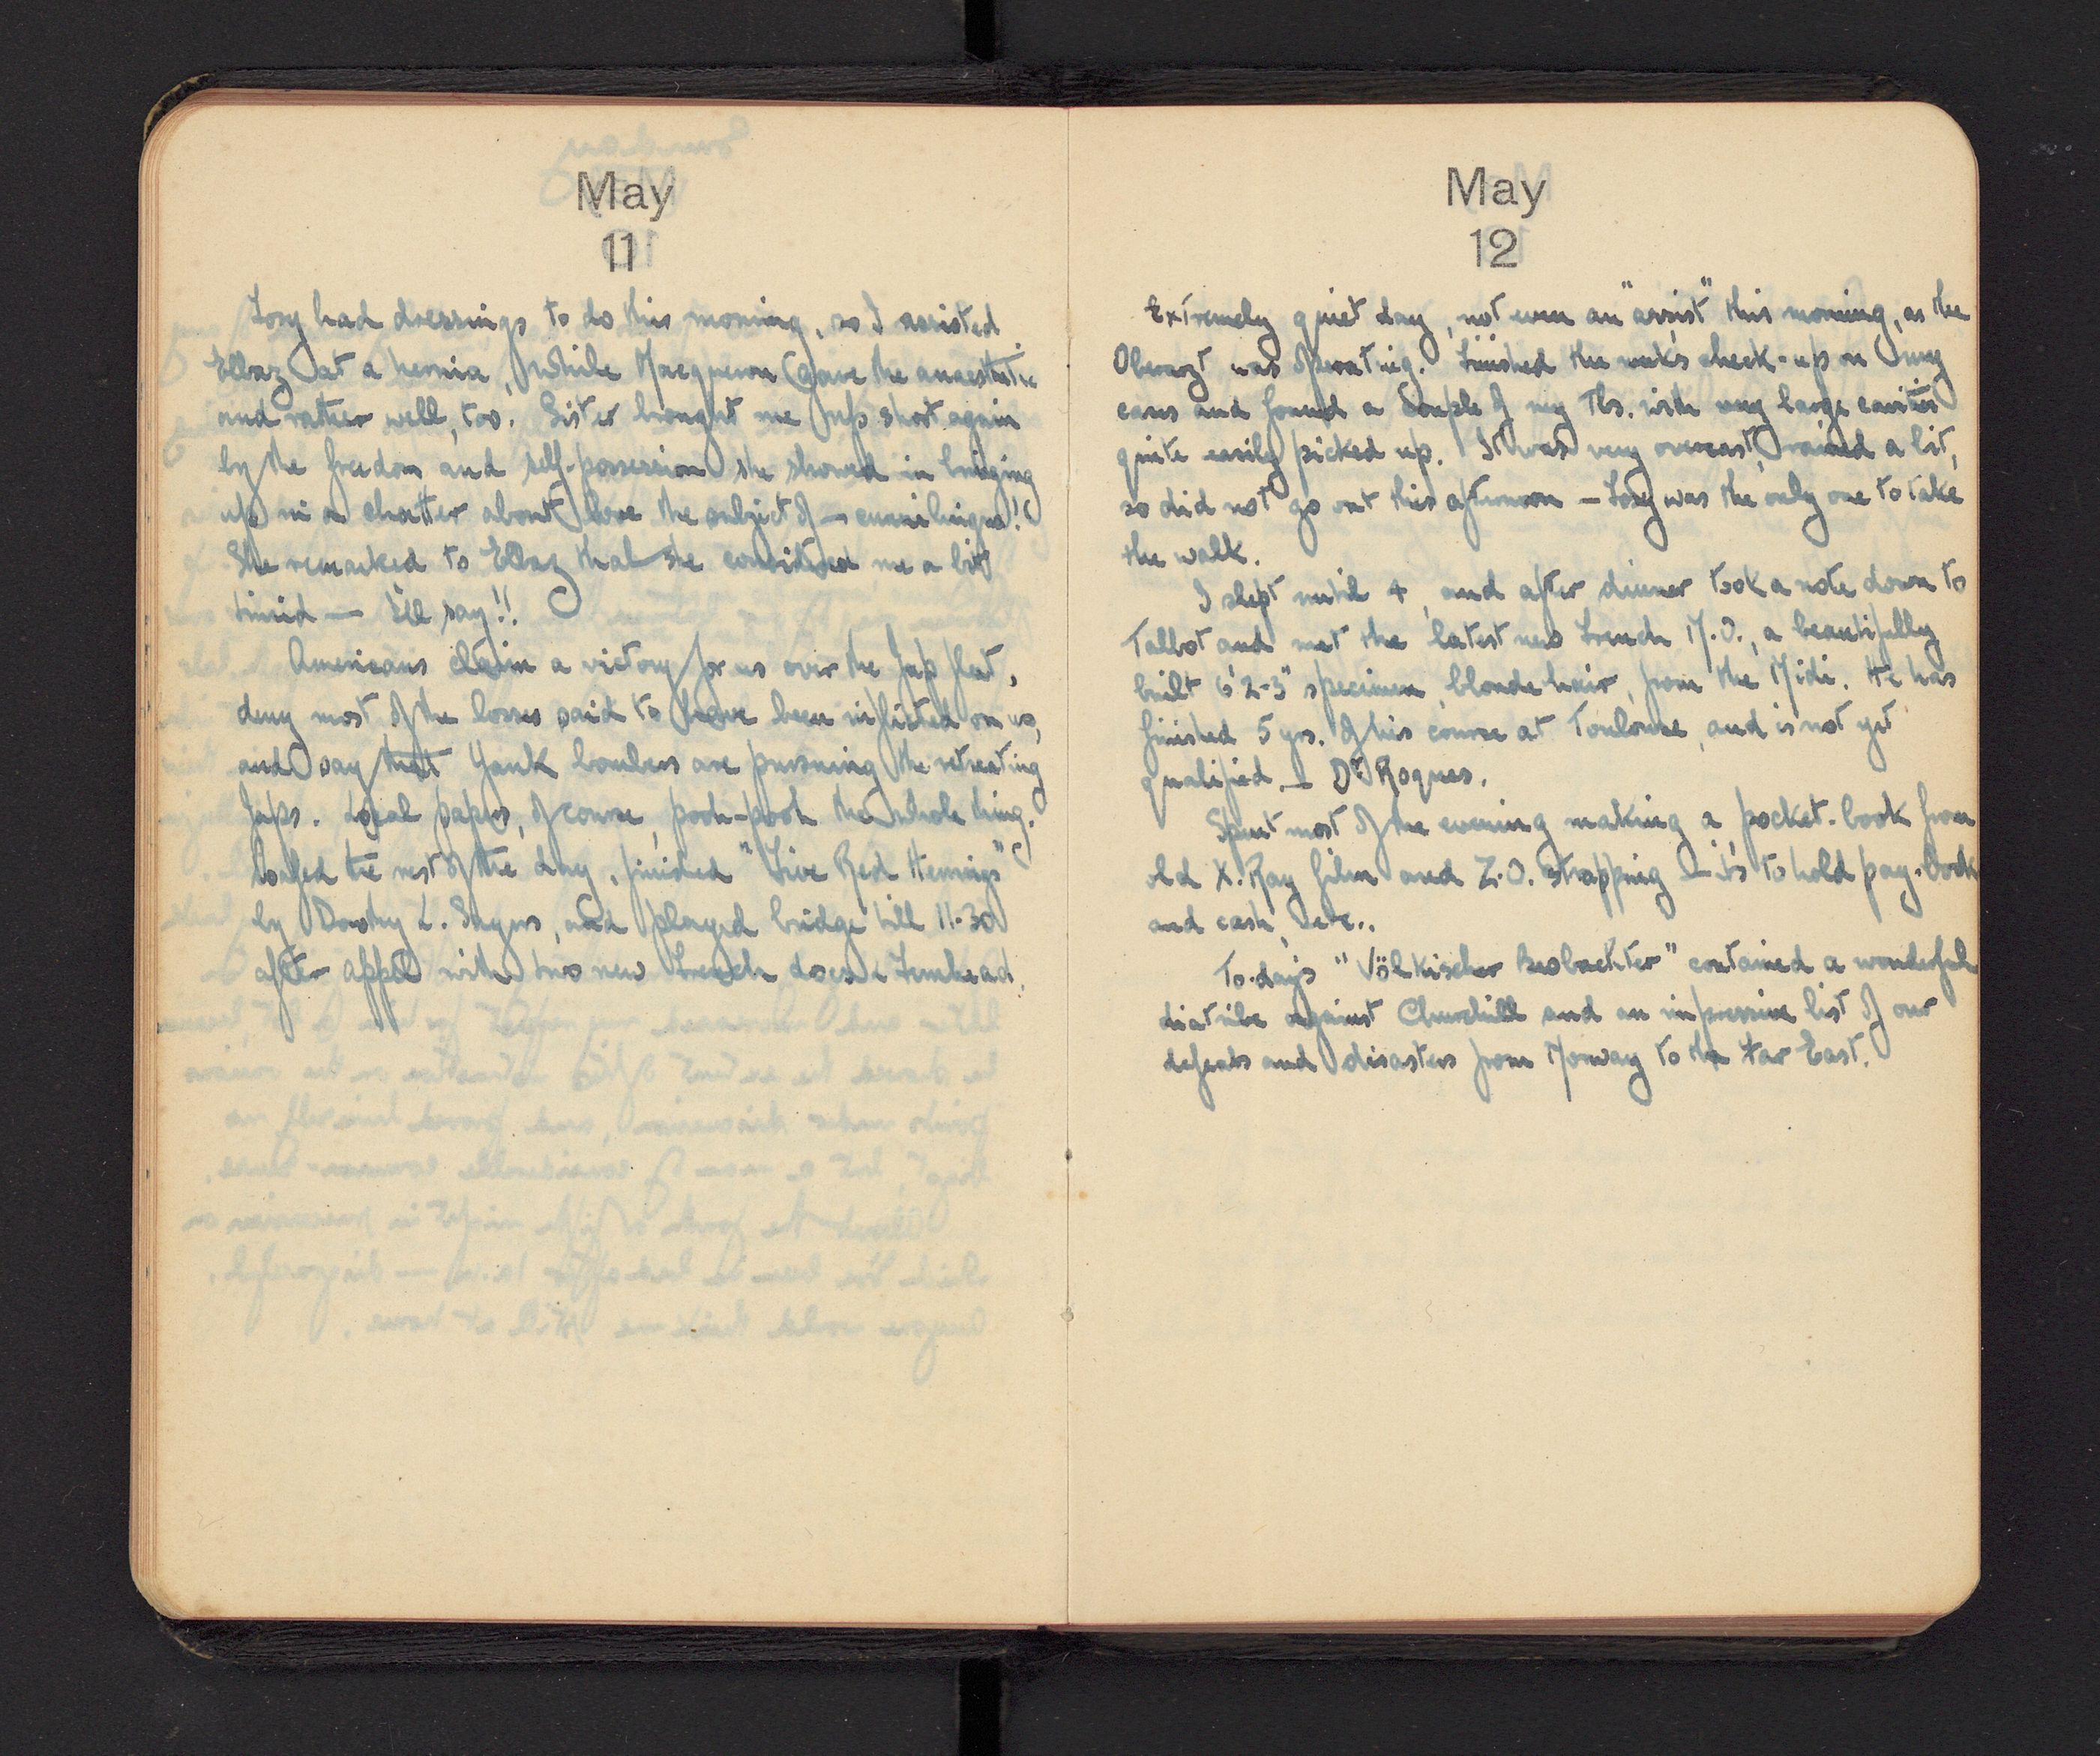 May
11
Tony had dressings to do this morning, so I assisted
Ellaz at a hernia, while Macqueron gave the anaesthetic
and rather well, too. Sister brought me up short again
by the freedom and self-possession she showed in bringing
up in a chatter about love the subject of — cunnilingus!!
She remarked to Ellaz that she considered me a bit
timid — I'll say!!
Americans claim a victory for us over the Jap fleet,
deny most of the losses said to have been inflicted on us,
and say that Yank bombers are pursuing the retreating
Japs. Local papers, of course, pooh-pooh the whole thing.
Loafed the rest of the day, finished "Five Red Herrings"
by Dorothy L. Sayers, and played bridge till 11.30
after appel with two new French docs &
May
12
Extremely quiet day, not even an "assist" this morning, as the
Oberarzt was operating. Finished the week's check-up on my
cases and found a couple of my Tbs. with very large cavities
quite easily picked up. It was very overcast, rained a bit,
so did not go out this afternoon — Tony was the only one to take
the walk.
I slept until 4, and after dinner took a note down to
Talbot and met the latest new French M.O., a beautifully
built 6'2-3" specimen, blonde hair, from the Midi. He has
finished 5 yrs. of his course at Toulouse, and is not yet
qualified — Dr Roques.
Spent most of the evening making a pocket-book from
old X-Ray film and Z.O. strapping — it's to hold pay-book
and cash, etc..
To-day's "Völkischer Beobachter" contained a wonderful
diatribe against Churchill and an impressive list of our
defeats and disasters from Norway to the Far East.